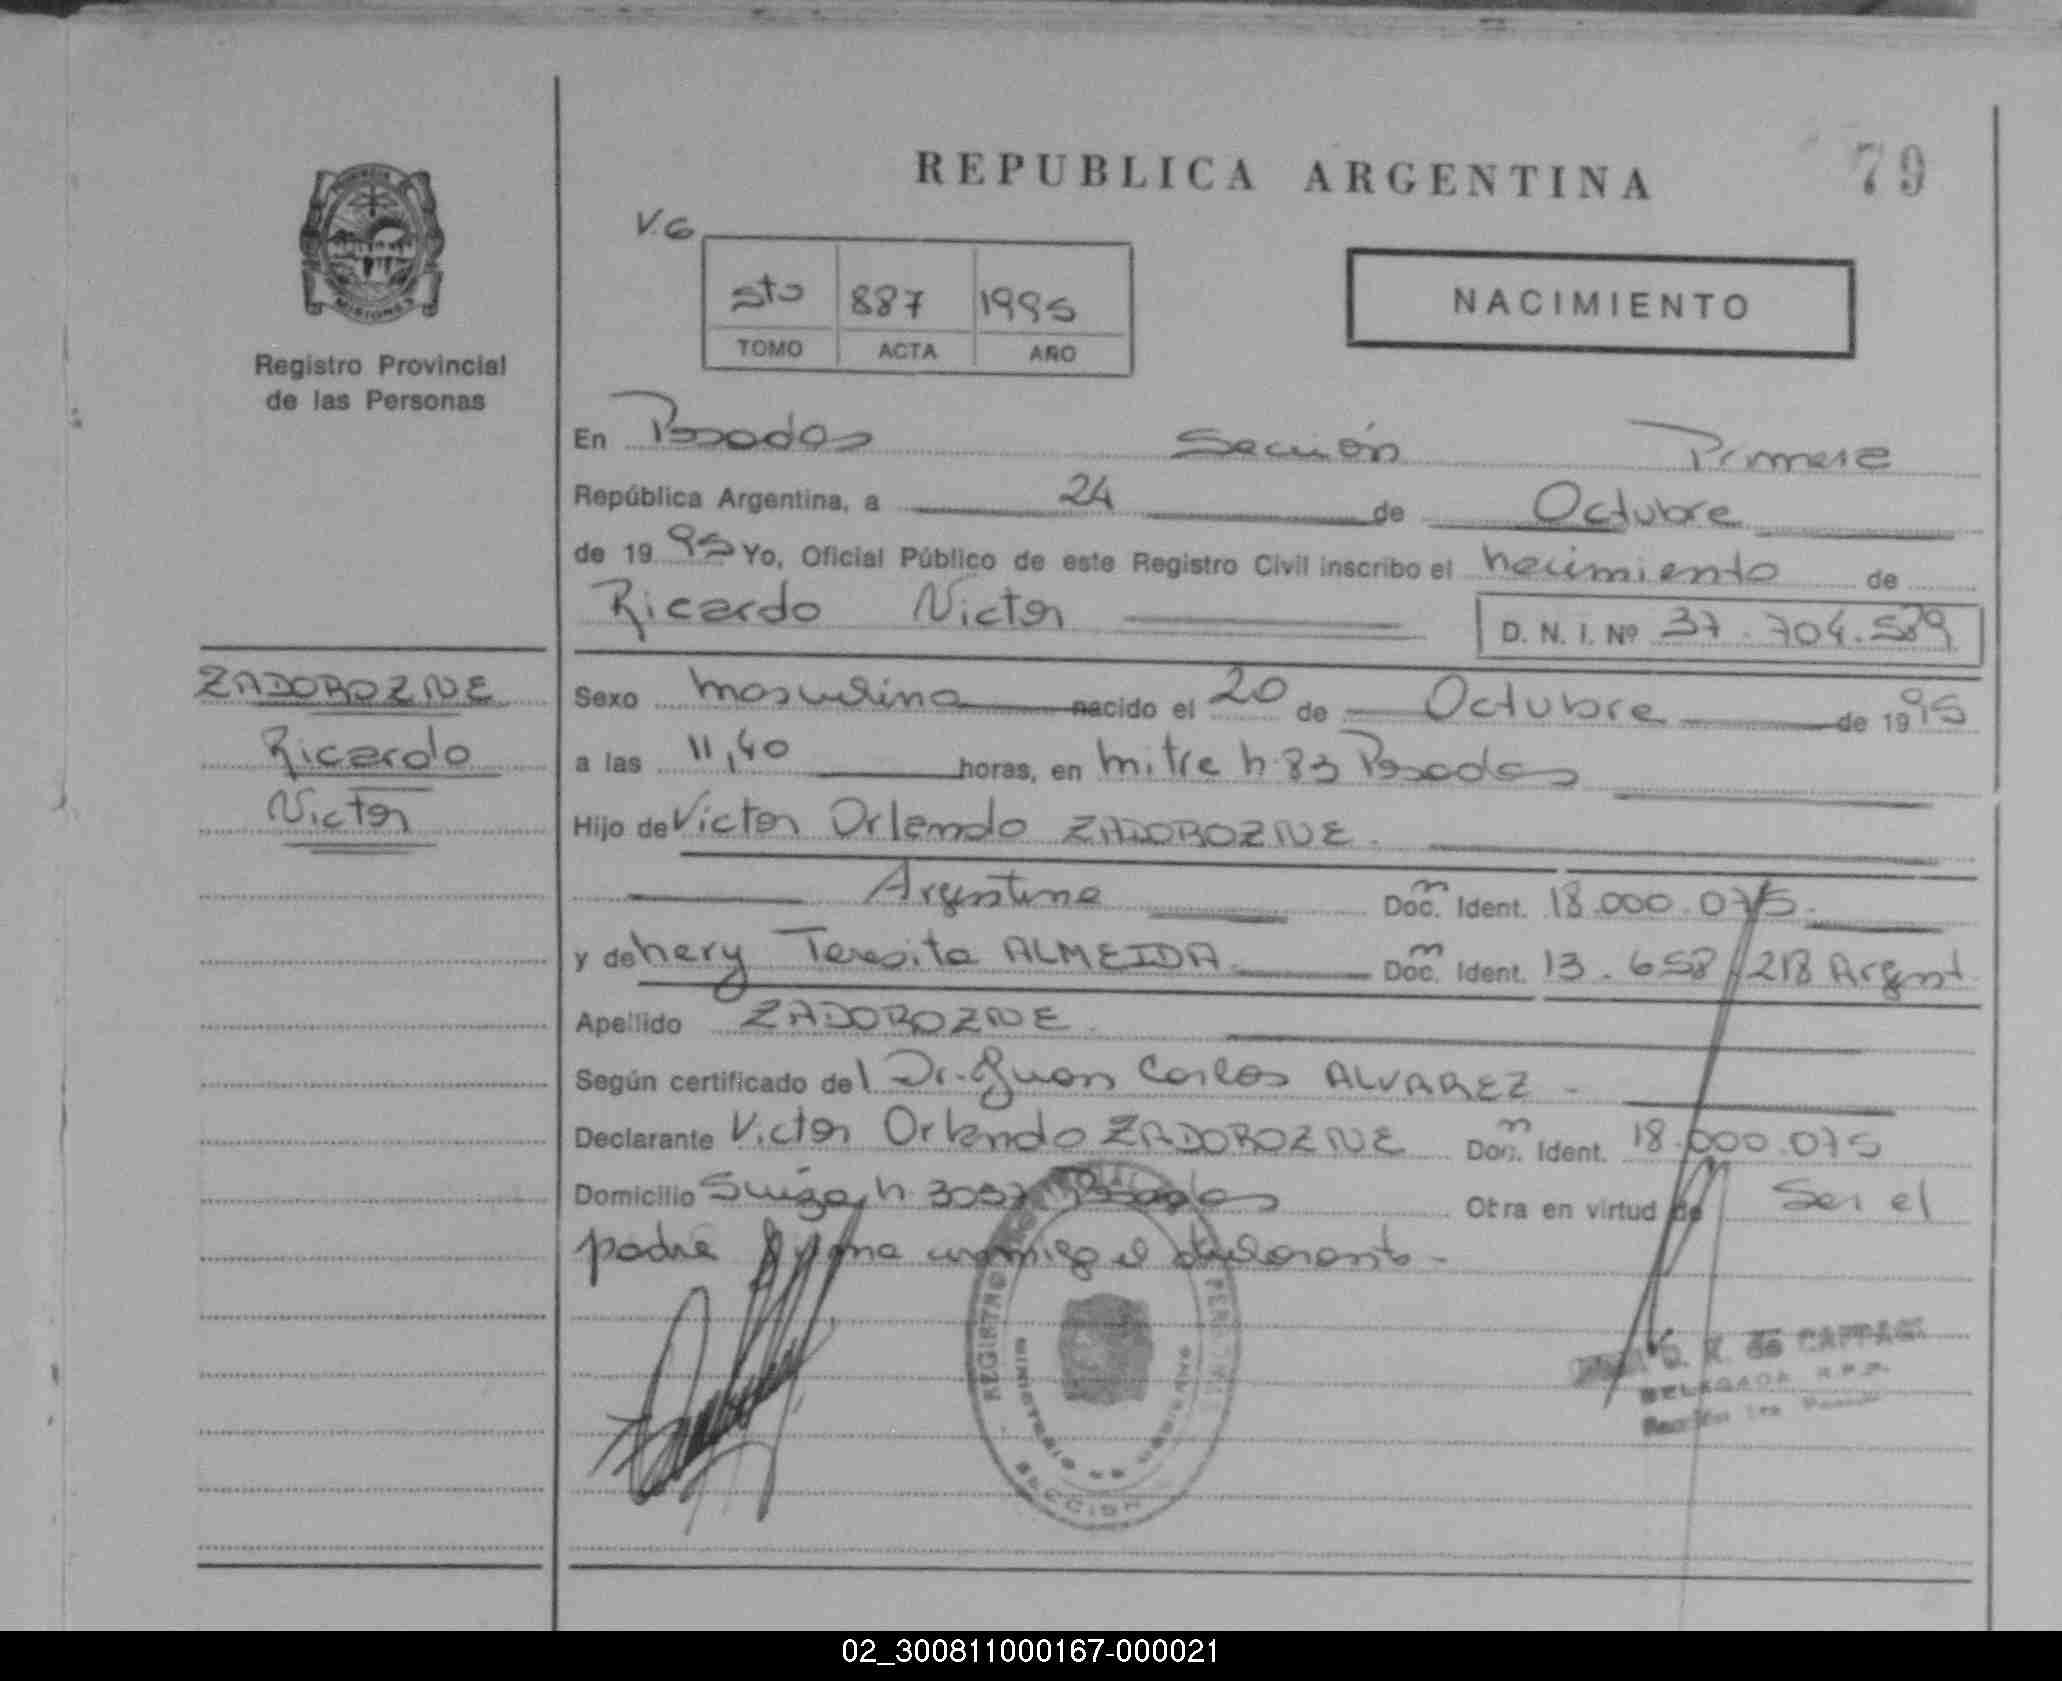 REPUBLICA ARGENTINA
79
V.G
5to 887 1995
TOMO ACTA AÑO
NACIMIENTO
Registro Provincial
de las Personas
En Posadas Sección Primera
República Argentina, a 24 de Octubre
de 1995 Yo, Oficial Público de este Registro Civil inscribo el nacimiento de
Ricardo Victor D. N. I. Nº 37.704.589
ZADOROZNE
Ricardo
Victor
Sexo masculino nacido el 20 de Octubre de 1995
a las 11,40 horas, en mitre n. 83 Posadas
Hijo de Victor Orlando ZADOROZNE.
Argentina Doc. Ident. 18.000.075.
y de nery Teresita ALMEIDA Doc. Ident. 13.658.218 Argent
Apellido ZADOROZNE.
Según certificado del Dr. Juan Carlos ALVAREZ -
Declarante Victor Orlando ZADOROZNE Doc. Ident. 18.000.075
Domicilio Suiza n. 3057 Posadas Otra en virtud de Ser el
padre firma conmigo el declarante -
REGISTRO
MINISTERIO DE GOBIERNO
SECCION
DELEGADA R.P.P.
Sección 1ra Posadas
02_300811000167-000021